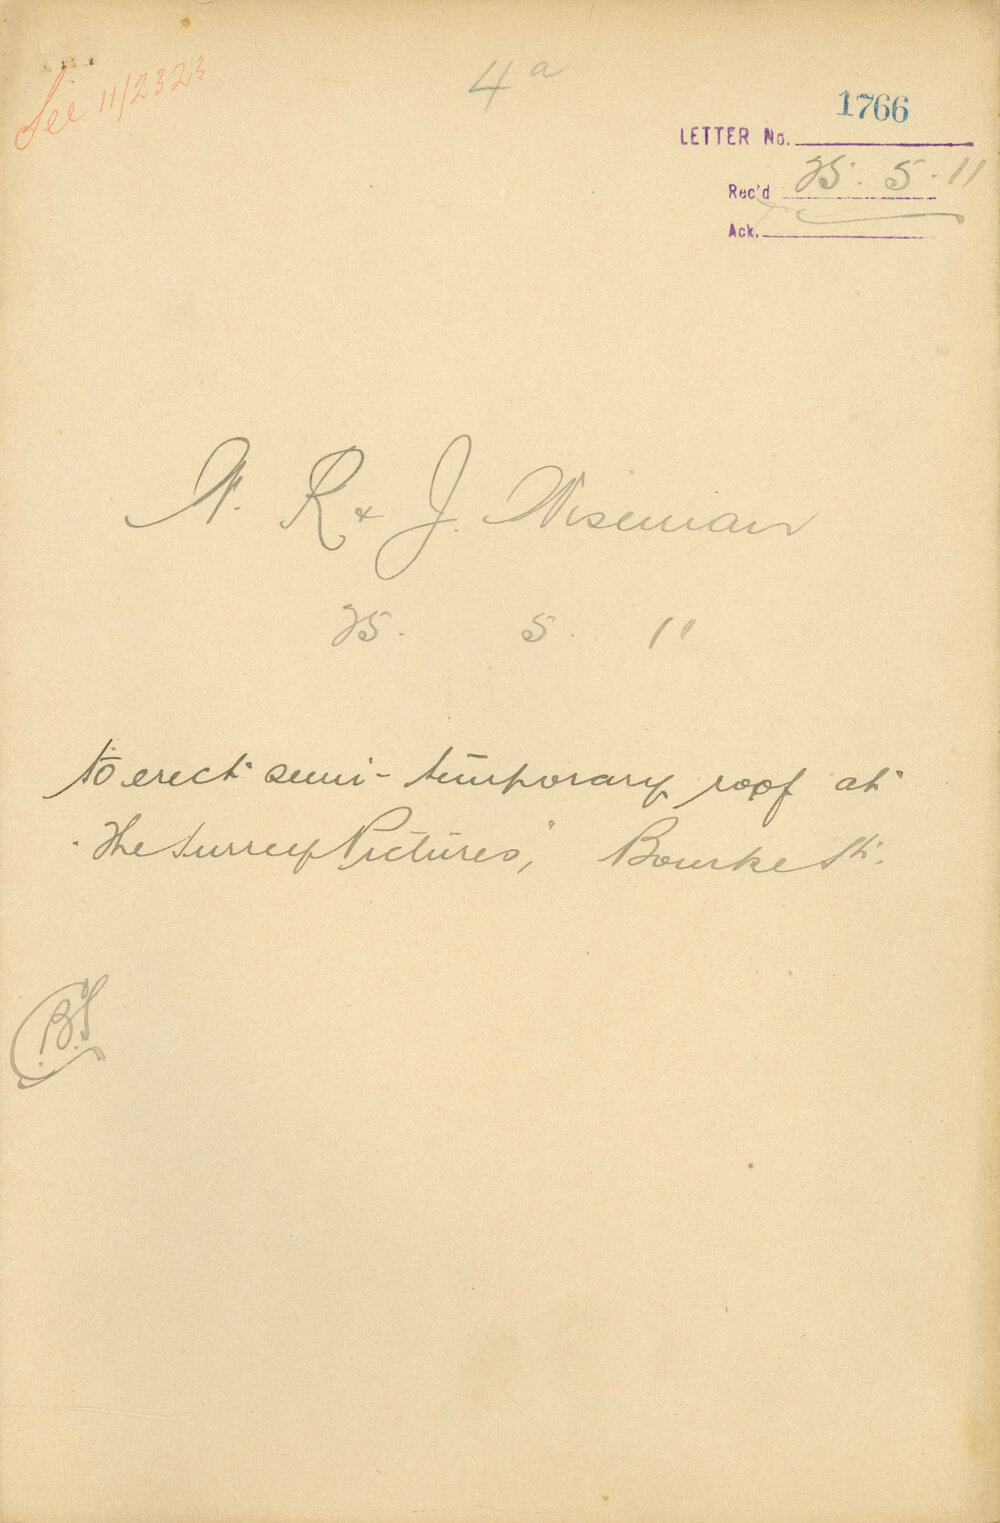 See 11/2323
4a
1766
LETTER No.
Rec'd 25. 5. 11
Ack.
W. R & J. Wiseman
25. 5. 11
to erect semi-temporary roof at
"The Surrey Pictures," Bourke St.
B.S